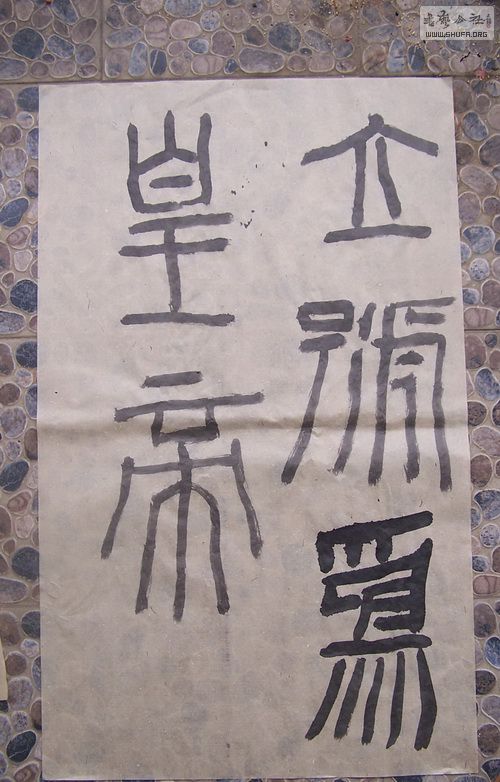 立號為
皇帝
书艺公社
WWW.SHUFA.ORG